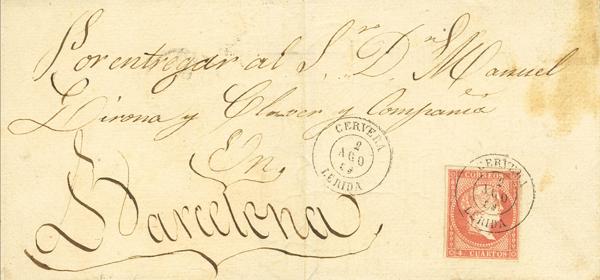 Por entregar al S.ʳ D.ⁿ Manuel
Girona y Clavér y Compania
En,
Barcelona
CERVERA
2
AGO
LERIDA
CERVERA
AGO
LERIDA
CORREOS
4 CUARTOS